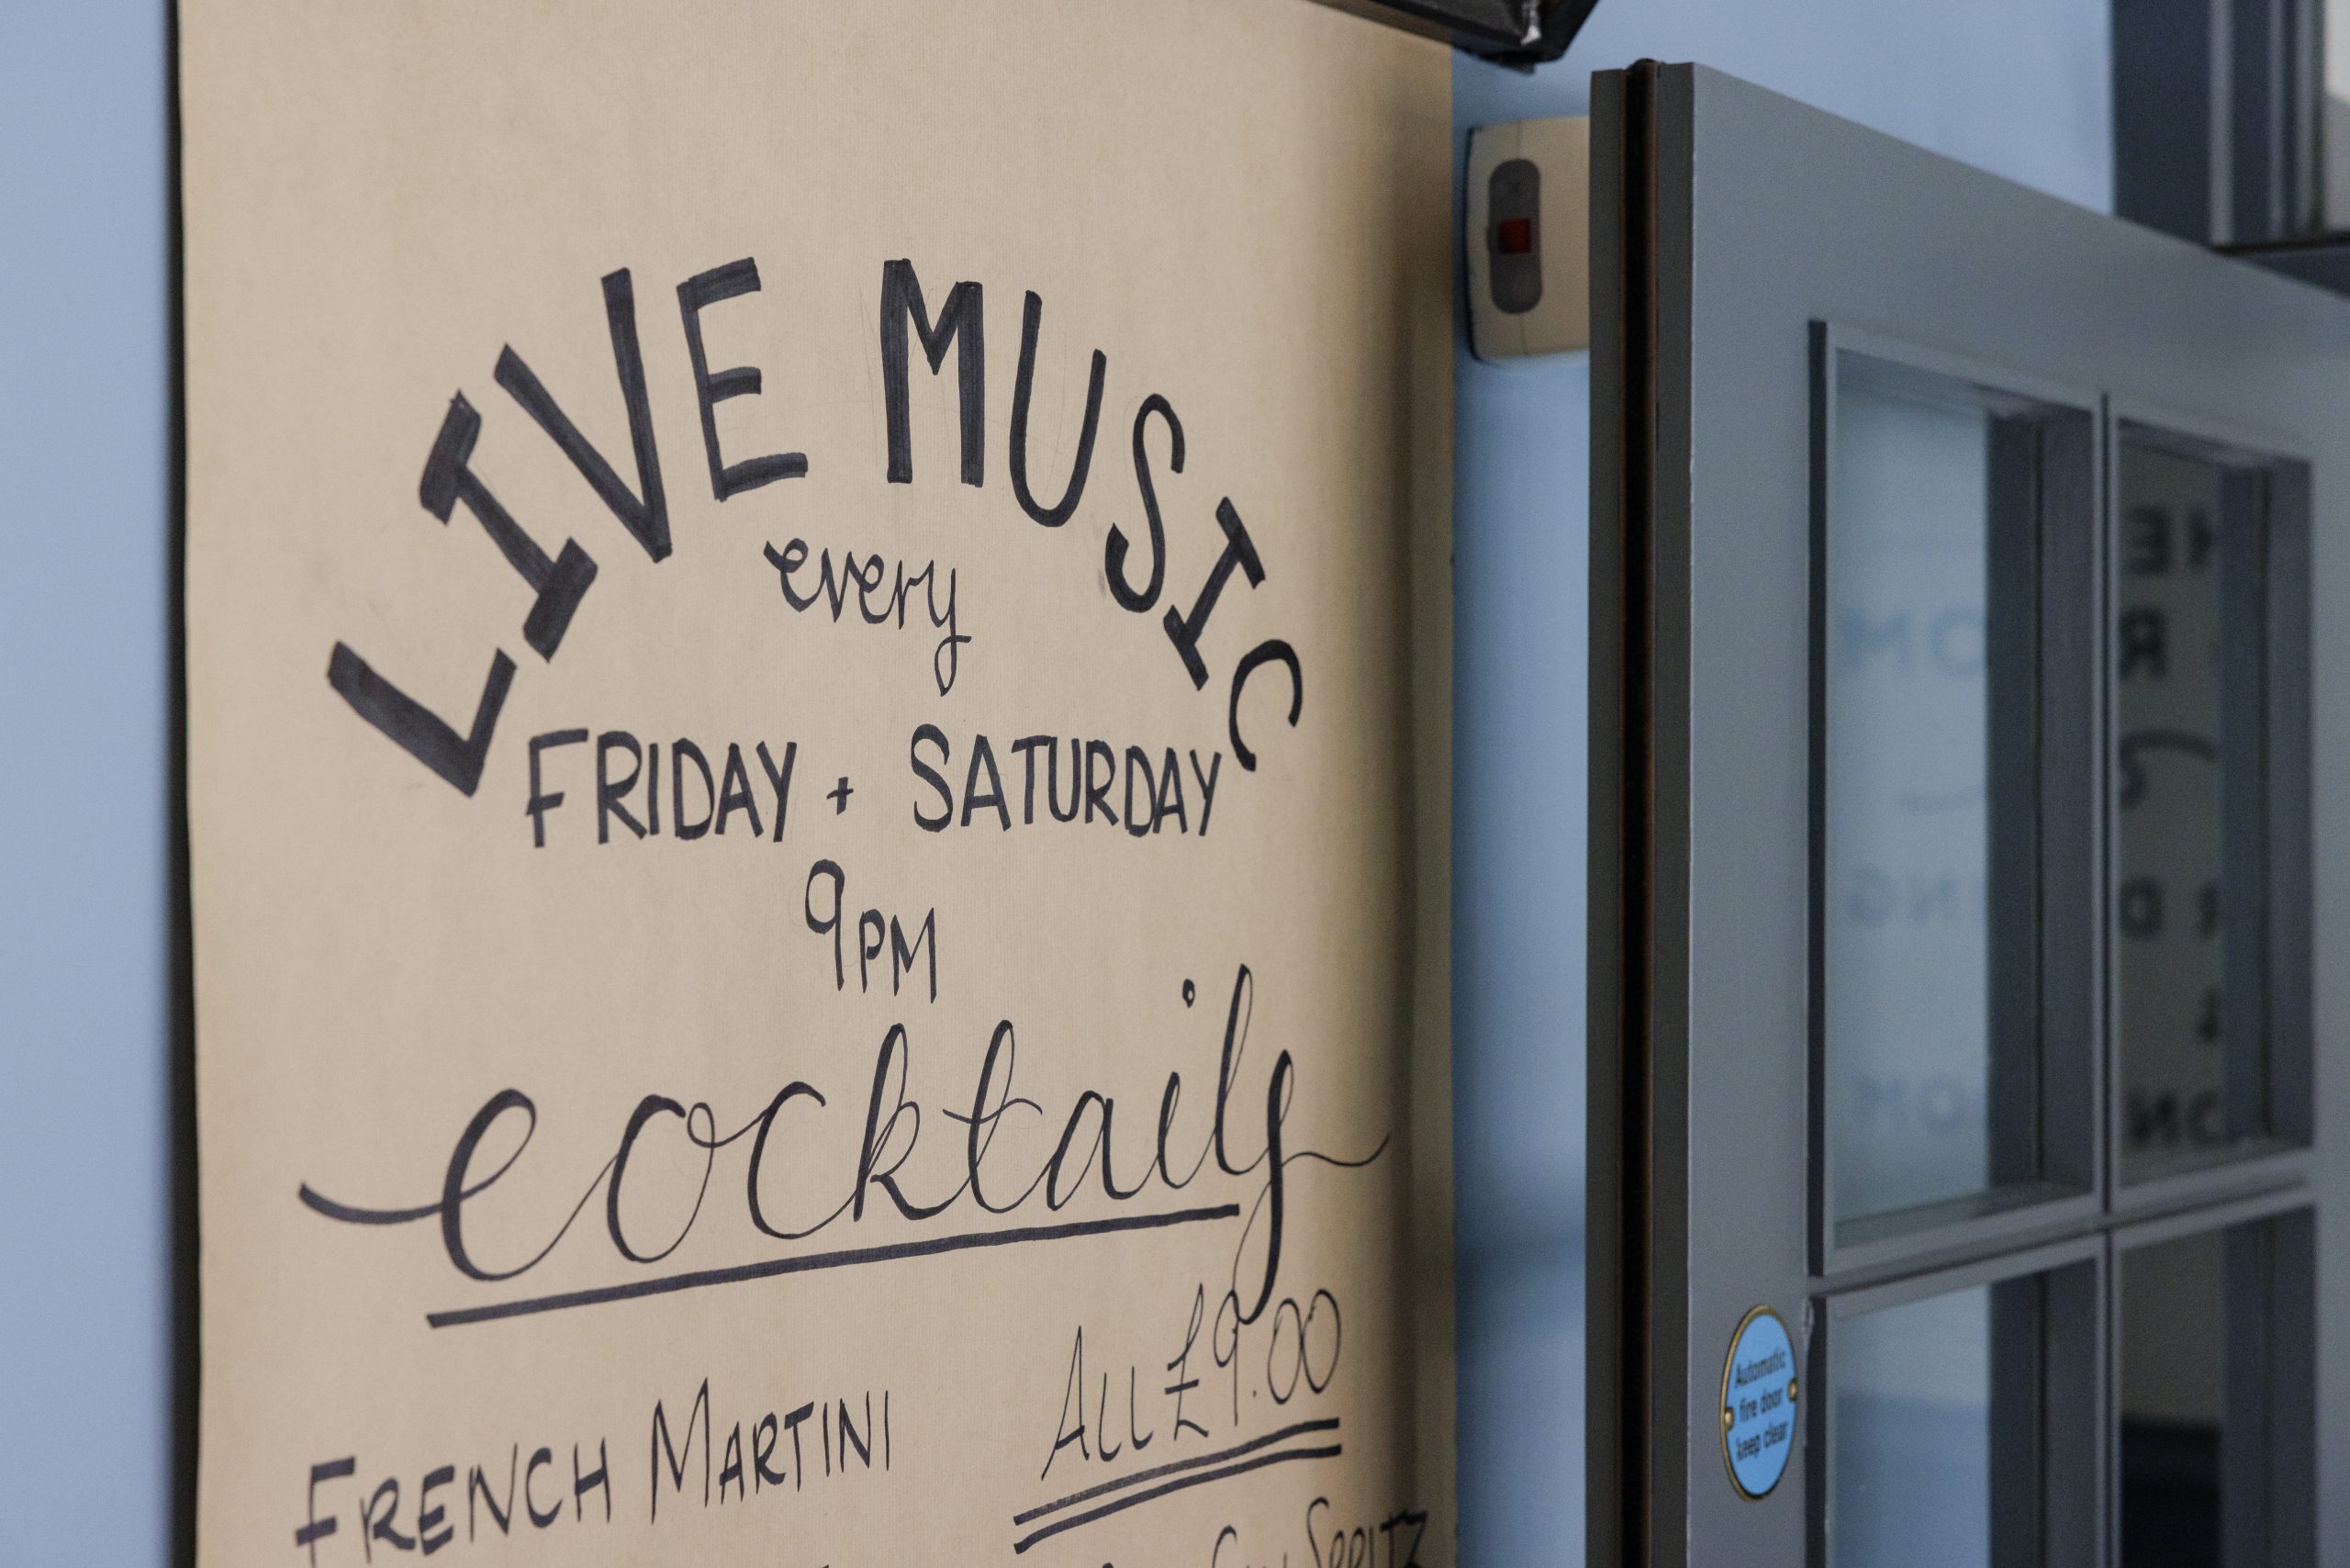 LIVE MUSIC
every
FRIDAY + SATURDAY
9PM
cocktails
ALL £9.00
FRENCH MARTINI
SPRITZ
Automatic
fire door
keep clear